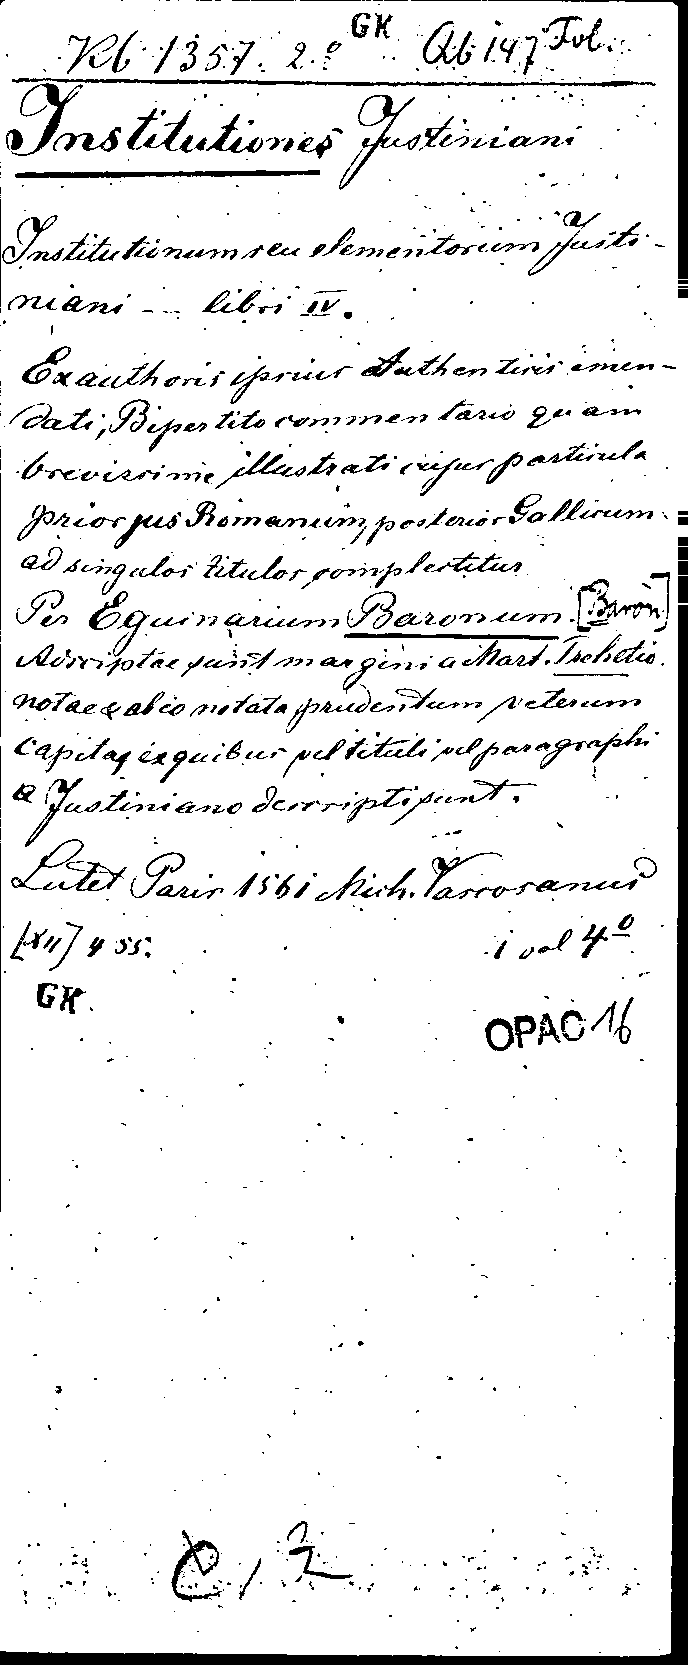 Kb 1357. 2.º GK Qb 147 Fol.
Institutiones Justiniani
Institutionum seu elementorum Justi-
niani -- libri IV.
Ex authoris ipsius Authenticis emen-
dati, Bipertito commentario quam
brevissime illustrati cujus particula
prior jus Romanum, posterior Gallicum
ad singulos titulos complectitur
Per Eguinarium Baronum. [Baron]
Adscriptae sunt margini a Mart. Trchetio.
notae & ab eo notata prudentum veterum
capita, ex quibus vel tituli vel paragraphi
a Justiniano descripti sunt.
Lutet Paris 1561 Mich. Vascosanus
[XII] 455. 1 vol 4º
GK.
OPAC 16
C, 2